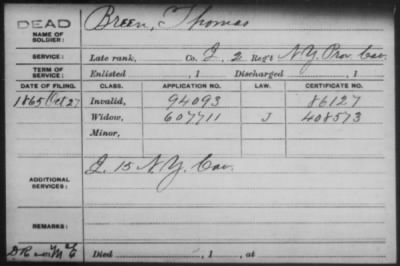 DEAD
Breen, Thomas
NAME OF SOLDIER:
SERVICE: Late rank, Co. I, 2 Reg't N.Y. Prov. Cav.
TERM OF SERVICE: Enlisted , 1 Discharged , 1
DATE OF FILING. CLASS. APPLICATION NO. LAW. CERTIFICATE NO.
1865 Oct 27 Invalid, 94093 86127
Widow, 607711 J 408573
Minor,
I. 15 N.Y. Cav.
ADDITIONAL SERVICES:
REMARKS:
Died , 1 , at